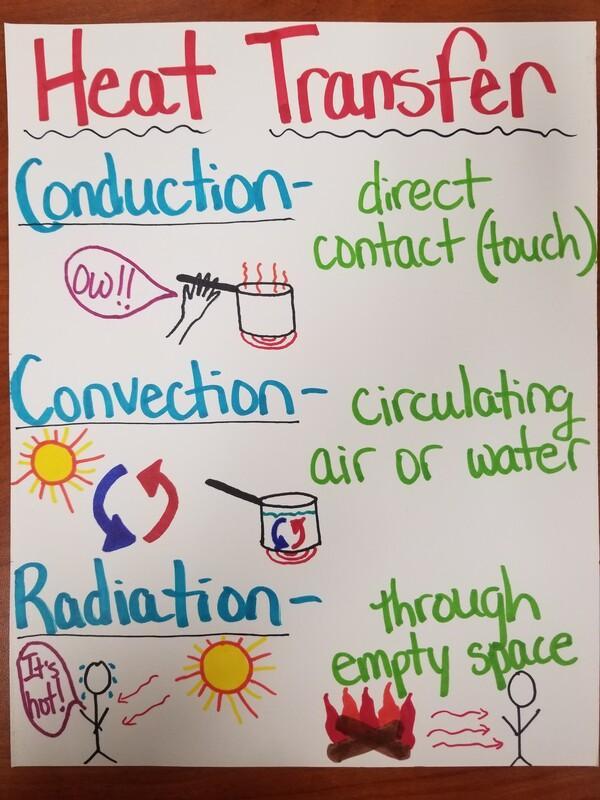 Heat Transfer
Conduction- direct
contact (touch)
OW!!
Convection- circulating
air or water
Radiation- through
empty space
It's
hot!